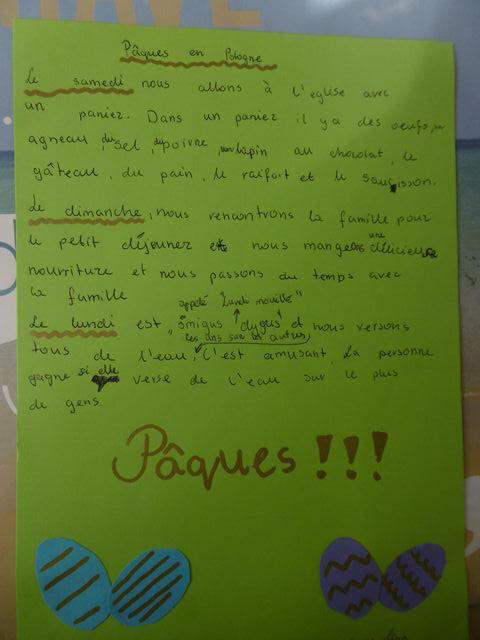 Pâques en Pologne
Le samedi nous allons à l'eglise avec
un panier. Dans un panier il y a des oeufs, un
agneau, du sel, du poivre, un lapin au chocolat, le
gâteau, du pain, le raifort et le saucisson.
Le dimanche, nous rencontrons la famille pour
le petit déjeuner et nous mangeons une délicieuse
nourriture et nous passons du temps avec
la famille
appelé "Lundi mouillé"
Le lundi est "śmigus dyngus" et nous versons
les uns sur les autres
tous de l'eau, C'est amusant. La personne
gagne si elle verse de l'eau sur le plus
de gens.
Pâques!!!